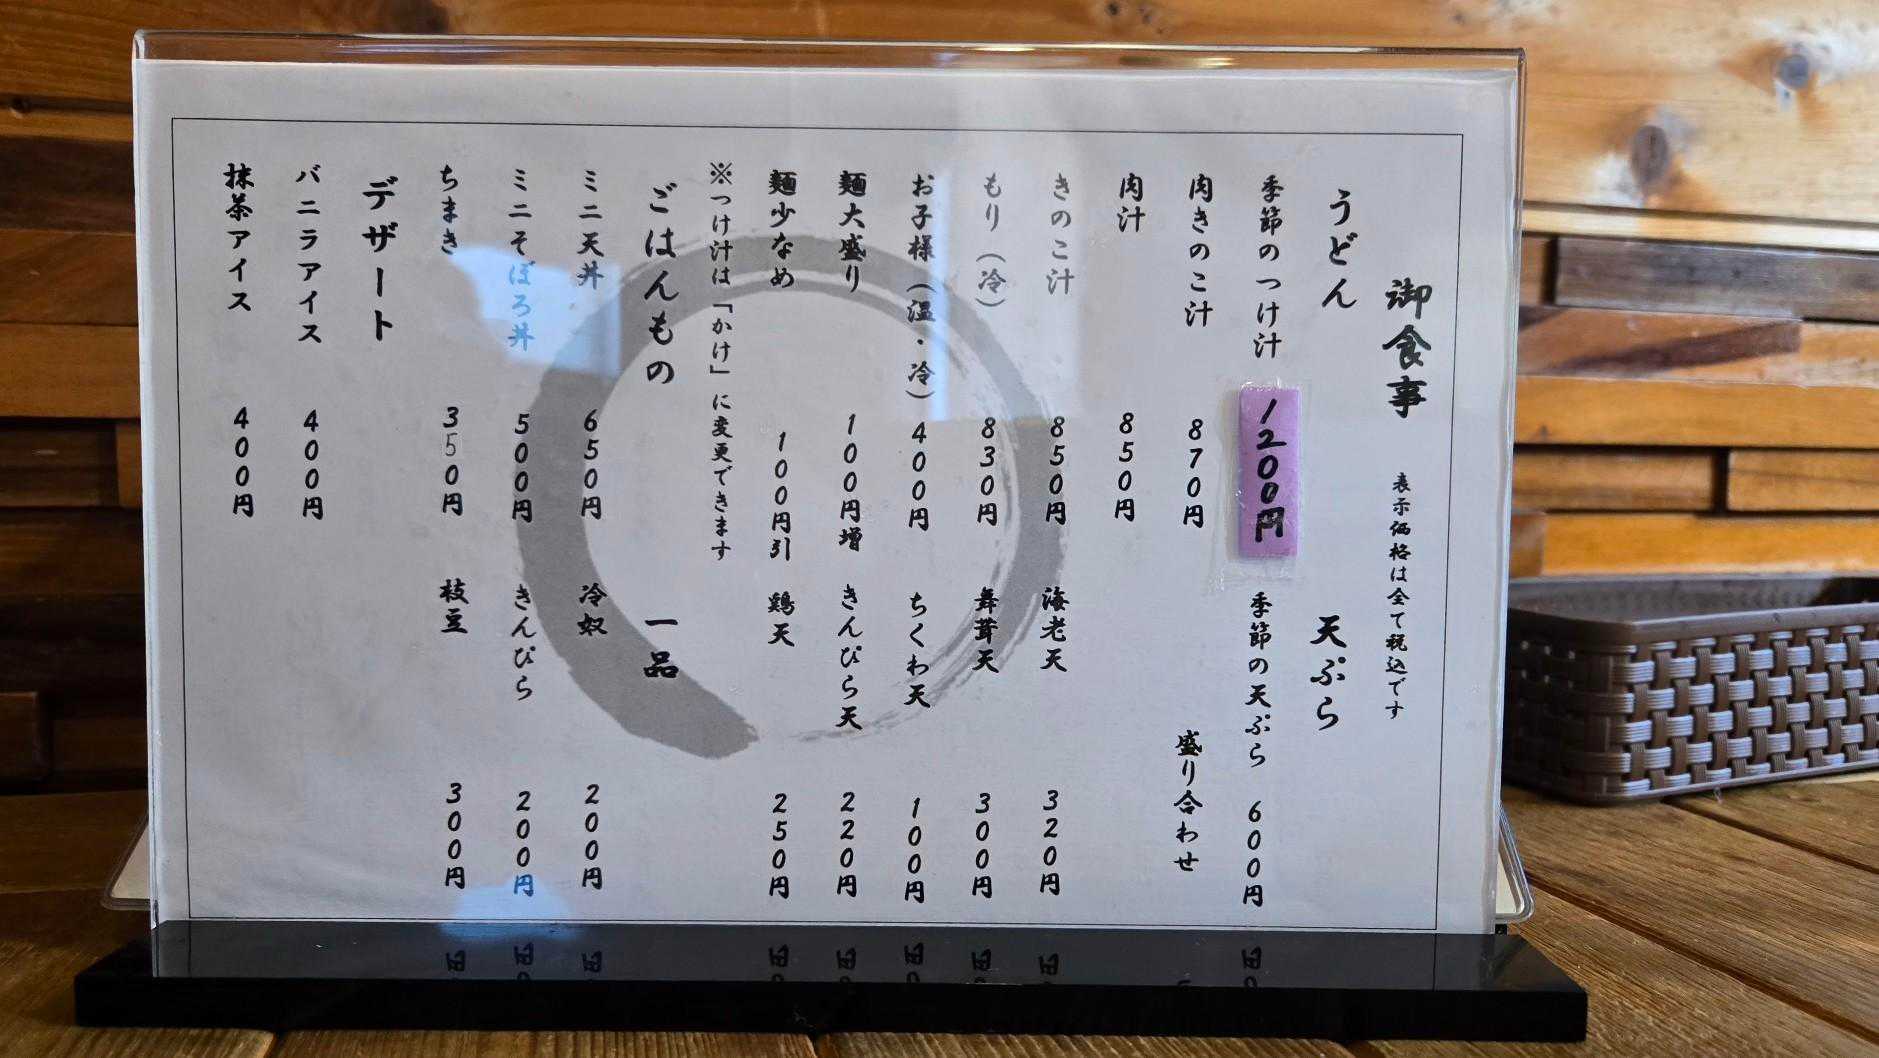 御食事
表示価格は全て税込です
うどん
季節のつけ汁 1200円
肉きのこ汁 870円
肉汁 850円
きのこ汁 850円
もり(冷) 830円
お子様(温・冷) 400円
麺大盛り 100円増
麺少なめ 100円引
※つけ汁は「かけ」に変更できます
天ぷら
季節の天ぷら 600円
盛り合わせ
海老天 320円
舞茸天 300円
ちくわ天 100円
きんぴら天 220円
鶏天 250円
ごはんもの
ミニ天丼 650円
ミニそぼろ丼 500円
ちまき 350円
一品
冷奴 200円
きんぴら 200円
枝豆 300円
デザート
バニラアイス 400円
抹茶アイス 400円